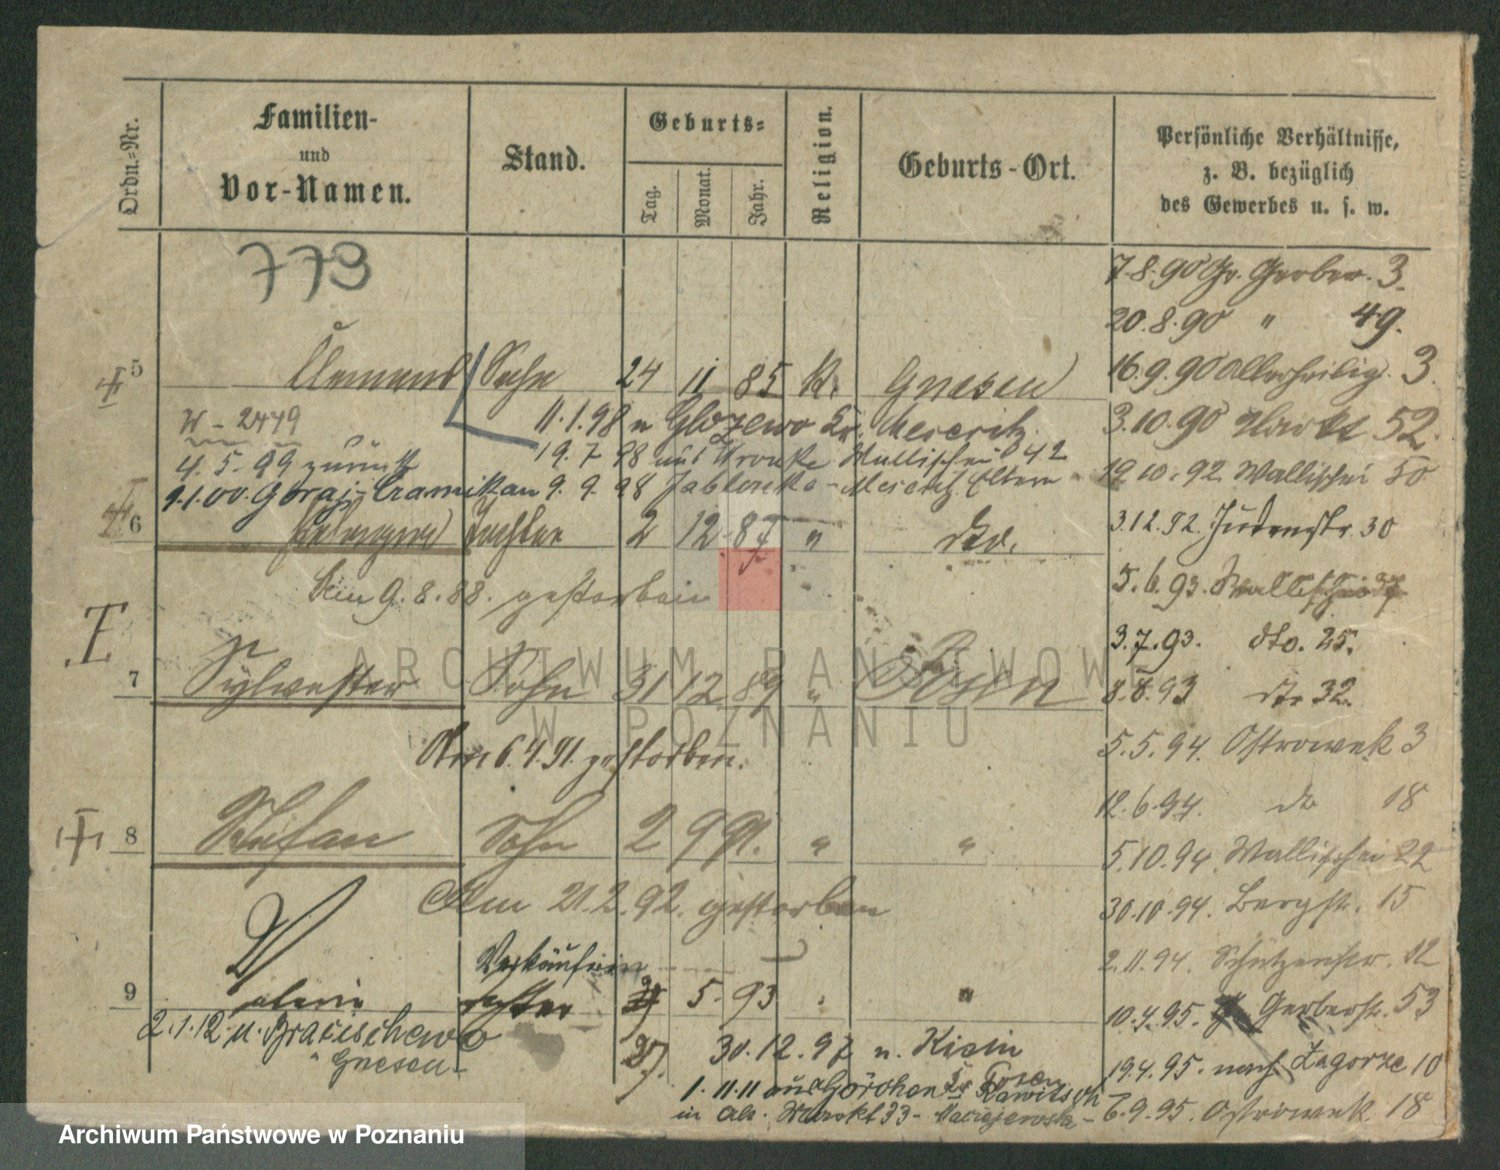 Ordn.-Nr.
Familien-
und
Vor-Namen.
Stand.
Geburts-
Tag.
Monat.
Jahr.
Religion.
Geburts-Ort.
Persönliche Verhältnisse,
z. B. bezüglich
des Gewerbes u. s. w.
773
7.8.90 Gr. Gerber. 3.
20.8.90 " 49.
5 Clemens Sohn 24 11 85 K. Gnesen
16.9.90 Allerheilig. 3
W - 2479
11.1.98 n Kr. Meseritz
3.10.90 52.
4.5.99 zurück
19.7.98 aus Wronke Wallischei 42
19.10.92 Wallischei 50
1.1.00. Goraj-Czarnikau 9.9.98 Jablonka - Meseritz Eltern
6 Pelagia Tochter 2 12 87 " dto.
3.12.92. Judenstr. 30
am 9.8.88. gestorben
5.6.93. Wallischei
3.7.93. dto. 25.
7 Sylvester Sohn 31 12 89 " Posen
8.8.93 dto 32.
Am 6.4.91. gestorben.
5.5.94. Ostrowek 3
12.6.94. do 18
8 Stefan Sohn 2 9 91. " "
5.10.94. Wallischei 22
Am 21.2.92. gestorben
30.10.94. Bergstr. 15
2.11.94. Schützenstr. 12
Verkäuferin
9 Valerie Tochter 5. 93 " "
10.4.95. Gerberstr. 53
2.1.12 n.
Gnesen
27. 30.12.97 n. Kicin
Kr. Posen
19.4.95. nach Zagorze 10
1.11.11 aus Görchen Kr Rawitsch
in Alt. Markt 33 - Maciejewska -
6.9.95. Ostrowek 18
ARCHIWUM PAŃSTWOW
W POZNANIU
Archiwum Państwowe w Poznaniu